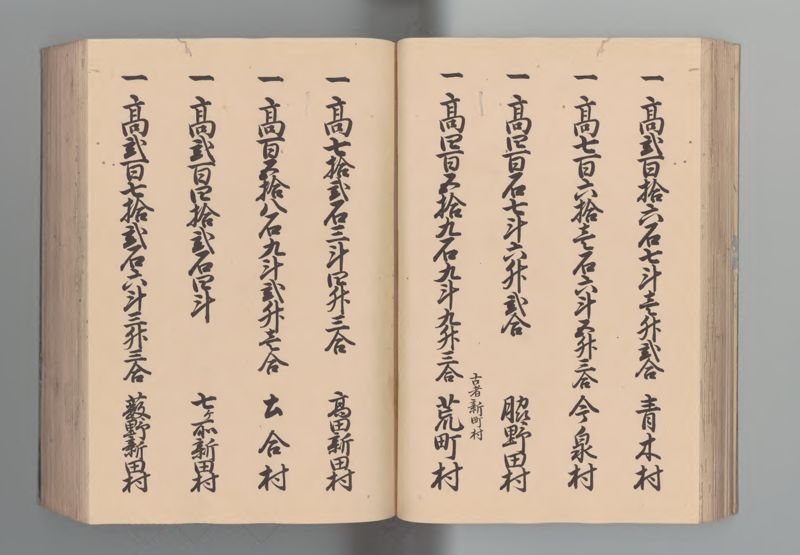 一 高弐百拾六石七斗壱升弐合 青木村
一 高七百六拾壱石六斗五升三合 今泉村
一 高四百石七斗六升弐合 脇野田村
古者新町村
一 高四百五拾九石九斗九升三合 荒町村
一 高七拾弐石三斗四升三合 高田新田村
一 高百五拾八石九斗弐升壱合 土合村
一 高弐百四拾弐石四斗 七ケ所新田村
一 高弐百七拾弐石六斗三升三合 薮野新田村